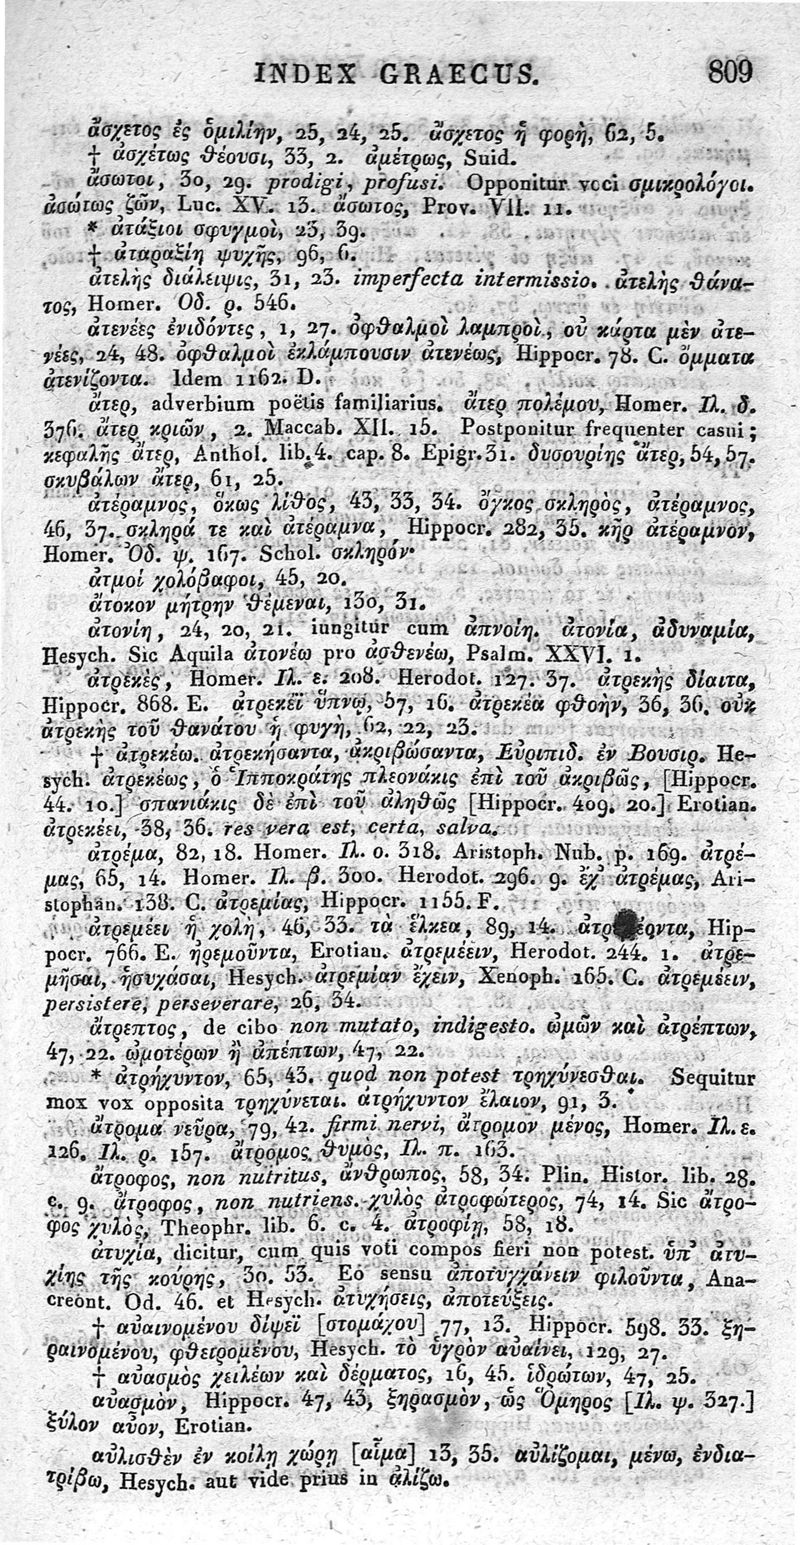 INDEX GRAECUS. 809
ἄσχετος ἐς ὁμιλίην, 25, 24, 25. ἄσχετος ἡ φορὴ, 62, 5.
† ἀσχέτως θέουσι, 33, 2. ἀμέτρως, Suid.
ἄσωτοι, 30, 29. prodigi, profusi. Opponitur voci σμικρολόγοι.
ἀσώτως ζῶν, Luc. XV. 13. ἄσωτος, Prov. VII. 11.
* ἀτάξιοι σφυγμοὶ, 23, 39.
† ἀταραξίη ψυχῆς, 96, 6.
ἀτελὴς διάλειψις, 31, 23. imperfecta intermissio. ἀτελὴς θάνα-
τος, Homer. Ὀδ. ρ. 546.
ἀτενέες ἐνιδόντες, 1, 27. ὀφθαλμοὶ λαμπροὶ, οὐ κάρτα μὲν ἀτε-
νέες, 24, 48. ὀφθαλμοὶ ἐκλάμπουσιν ἀτενέως, Hippocr. 78. C. ὄμματα
ἀτενίζοντα. Idem 1162. D.
ἄτερ, adverbium poëtis familiarius. ἄτερ πολέμου, Homer. Ιλ. δ.
376. ἄτερ κριῶν, 2. Maccab. XII. 15. Postponitur frequenter casui;
κεφαλῆς ἄτερ, Anthol. lib. 4. cap. 8. Epigr. 31. δυσουρίης ἄτερ, 54, 57.
σκυβάλων ἄτερ, 61, 25.
ἀτέραμνος, ὅκως λίθος, 43, 33, 34. ὄγκος σκληρὸς, ἀτέραμνος,
46, 37. σκληρά τε καὶ ἀτέραμνα, Hippocr. 282, 35. κῆρ ἀτέραμνον,
Homer. Ὀδ. ψ. 167. Schol. σκληρόν·
ἀτμοὶ χολόβαφοι, 45, 20.
ἄτοκον μήτρην θέμεναι, 130, 31.
ἀτονίη, 24, 20, 21. iungitur cum ἀπνοίη. ἀτονία, ἀδυναμία,
Hesych. Sic Aquila ἀτονέω pro ἀσθενέω, Psalm. XXVI. 1.
ἀτρεκὲς, Homer. Ιλ. ε. 208. Herodot. 127. 37. ἀτρεκὴς δίαιτα,
Hippocr. 868. E. ἀτρεκέϊ ὕπνῳ, 57, 16. ἀτρεκέα φθοὴν, 36, 36. οὐκ
ἀτρεκὴς τοῦ θανάτου ἡ φυγὴ, 62, 22, 23.
† ἀτρεκέω. ἀτρεκήσαντα, ἀκριβώσαντα, Εὐριπιδ. ἐν Βουσιρ. He-
sych. ἀτρεκέως, ὁ Ἱπποκράτης πλεονάκις ἐπὶ τοῦ ἀκριβῶς, [Hippocr.
44. 10.] σπανιάκις δὲ ἐπὶ τοῦ ἀληθῶς [Hippocr. 409. 20.] Erotian.
ἀτρεκέει, 38, 36. res vera est, certa, salva.
ἀτρέμα, 82, 18. Homer. Ιλ. ο. 318. Aristoph. Nub. p. 169. ἀτρέ-
μας, 65, 14. Homer. Ιλ. β. 300. Herodot. 296. 9. ἔχ' ἀτρέμας, Ari-
stophan. 138. C. ἀτρεμίας, Hippocr. 1155. F.
ἀτρεμέει ἡ χολὴ, 46, 33. τὰ ἕλκεα, 89, 14. Hip-
pocr. 766. E. ἠρεμοῦντα, Erotian. ἀτρεμέειν, Herodot. 244. 1. ἀτρε-
μῆσαι, ἡσυχάσαι, Hesych. ἀτρεμίαν ἔχειν, Xenoph. 165. C. ἀτρεμέειν,
persistere, perseverare, 26, 34.
ἄτρεπτος, de cibo non mutato, indigesto. ὠμῶν καὶ ἀτρέπτων,
47, 22. ὠμοτέρων ἢ ἀπέπτων, 47, 22.
* ἀτρήχυντον, 65, 43. quod non potest τρηχύνεσθαι. Sequitur
mox vox opposita τρηχύνεται. ἀτρήχυντον ἔλαιον, 91, 3.
ἄτρομα νεῦρα, 79, 42. firmi nervi, ἄτρομον μένος, Homer. Ιλ. ε.
126. Ιλ. ρ. 157. ἄτρομος θυμὸς, Ιλ. π. 163.
ἄτροφος, non nutritus, ἄνθρωπος, 58, 34. Plin. Histor. lib. 28.
c. 9. ἄτροφος, non nutriens. χυλὸς ἀτροφώτερος, 74, 14. Sic ἄτρο-
φος χυλὸς, Theophr. lib. 6. c. 4. ἀτροφίη, 58, 18.
ἀτυχία, dicitur, cum quis voti compos fieri non potest. ὑπ' ἀτυ-
χίης τῆς κούρης, 30. 53. Eo sensu ἀποτυγχάνειν φιλοῦντα, Ana-
creont. Od. 46. et Hesych. ἀτυχήσεις, ἀποτεύξεις.
† αὐαινομένου δίψεϊ [στομάχου] 77, 13. Hippocr. 598. 33. ξη-
ραινομένου, φθειρομένου, Hesych. τὸ ὑγρὸν αὐαίνει, 129, 27.
† αὐασμὸς χειλέων καὶ δέρματος, 16, 45. ἱδρώτων, 47, 25.
αὐασμὸν, Hippocr. 47, 43, ξηρασμὸν, ὡς Ὅμηρος [Ιλ. ψ. 327.]
ξύλον αὖον, Erotian.
αὐλισθὲν ἐν κοίλῃ χώρῃ [αἷμα] 13, 35. αὐλίζομαι, μένω, ἐνδια-
τρίβω, Hesych. aut vide prius in ἁλίζω.